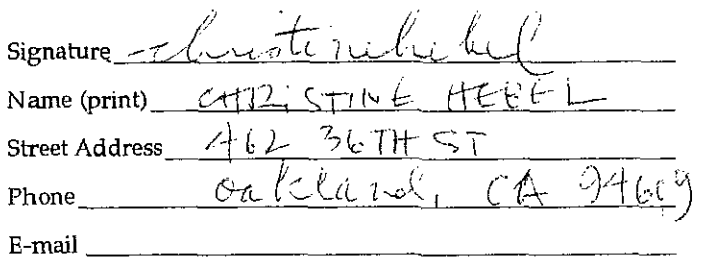 Signature Christine Hebel
Name (print) CHRISTINE HEBEL
Street Address 462 36TH ST
Phone Oakland, CA 94609
E-mail